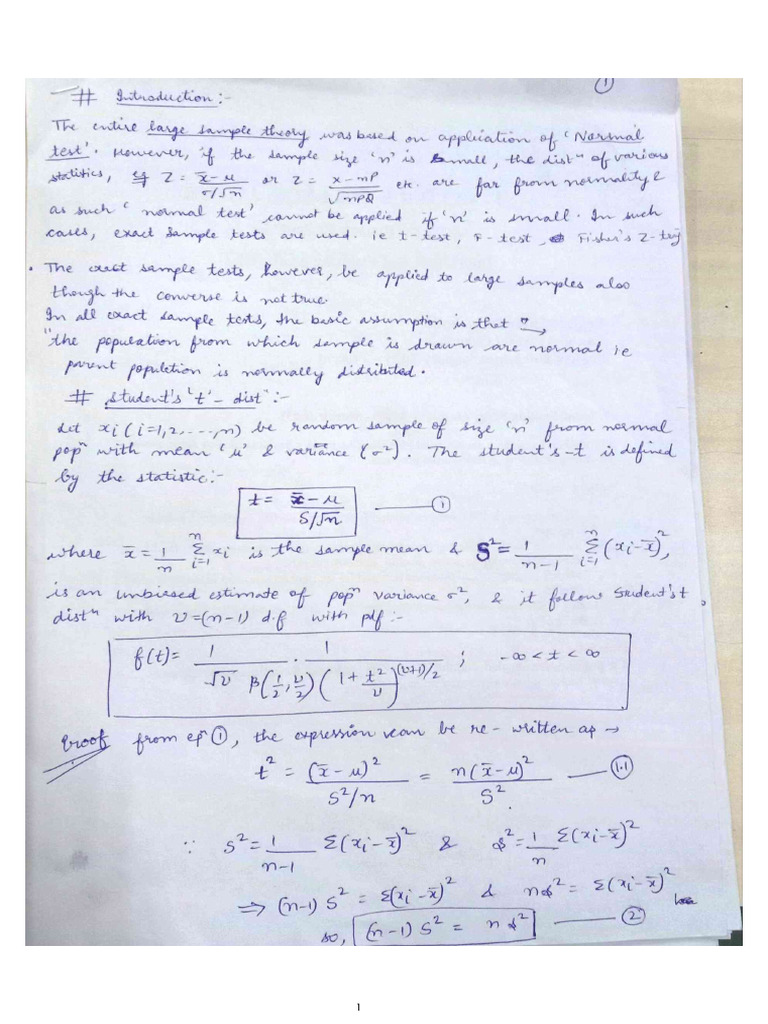 ①
# Introduction:-
The entire large sample theory was based on application of 'Normal
test'. However, if the sample size 'n' is small, the distⁿ of various
statitics, eg Z = (x̄-μ)/(σ/√n) or Z = (x-nP)/√(nPQ) etc. are far from normality &
as such 'normal test' cannot be applied if 'n' is small. In such
cases, exact sample tests are used. ie t-test, F-test, Fisher's Z-test
• The exact sample tests, however, be applied to large samples also
though the converse is not true.
In all exact sample tests, the basic assumption is that →
"the population from which sample is drawn are normal ie
parent population is normally distributed.
# Student's 't'-distⁿ:-
Let xi (i=1,2,...,n) be random sample of size 'n' from normal
popⁿ with mean 'μ' & variance (σ²). The student's-t is defined
by the statistic:-
t = (x̄-μ)/(S/√n) —— ①
where x̄ = 1/n Σ_{i=1}^{n} xi is the sample mean & S² = 1/(n-1) Σ_{i=1}^{n} (xi-x̄)²,
is an unbiased estimate of popⁿ variance σ², & it follow Student's t
distⁿ with ν=(n-1) d.f with pdf:-
f(t) = 1/(√ν β(1/2, ν/2)) · 1/(1+t²/ν)^{(ν+1)/2} ; -∞<t<∞
Proof from eqⁿ ①, the expression can be re-written as →
t² = (x̄-μ)²/(S²/n) = n(x̄-μ)²/S². —— (1.1)
∵ S² = 1/(n-1) Σ(xi-x̄)² & s² = 1/n Σ(xi-x̄)²
⇒ (n-1) S² = Σ(xi-x̄)² & ns² = Σ(xi-x̄)²
so, (n-1) S² = ns² —— ②
1